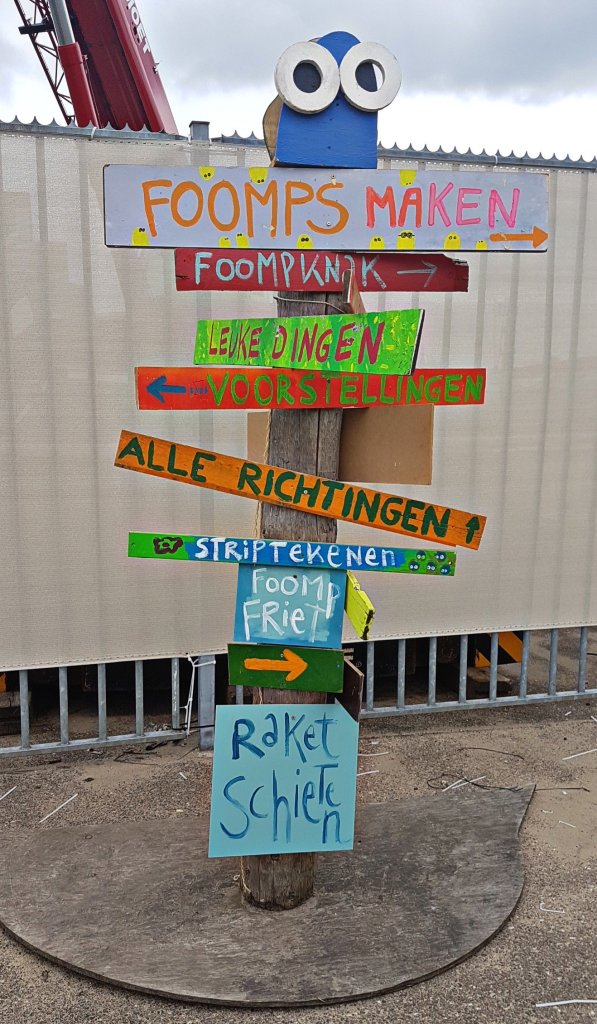 FOOMPS MAKEN
FOOMPKNAK
LEUKE DINGEN
VOORSTELLINGEN
ALLE RICHTINGEN
STRIPTEKENEN
FOOMP
FRIET
RAKET
SCHIETEN